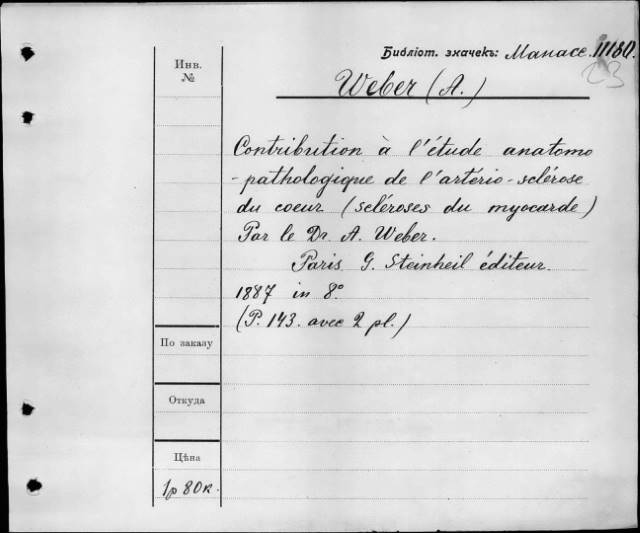 Библіот. значекъ: Манасс. 11180.
23
Инв.
№
Weber (A.)
Contribution à l'étude anatomo
-pathologique de l'artério-sclérose
du coeur (scléroses du myocarde)
Par le Dr A. Weber.
Paris G. Steinheil éditeur.
1887 in 8º
(P. 143. avec 2 pl.)
По заказу
Откуда
Цѣна
1р 80к.